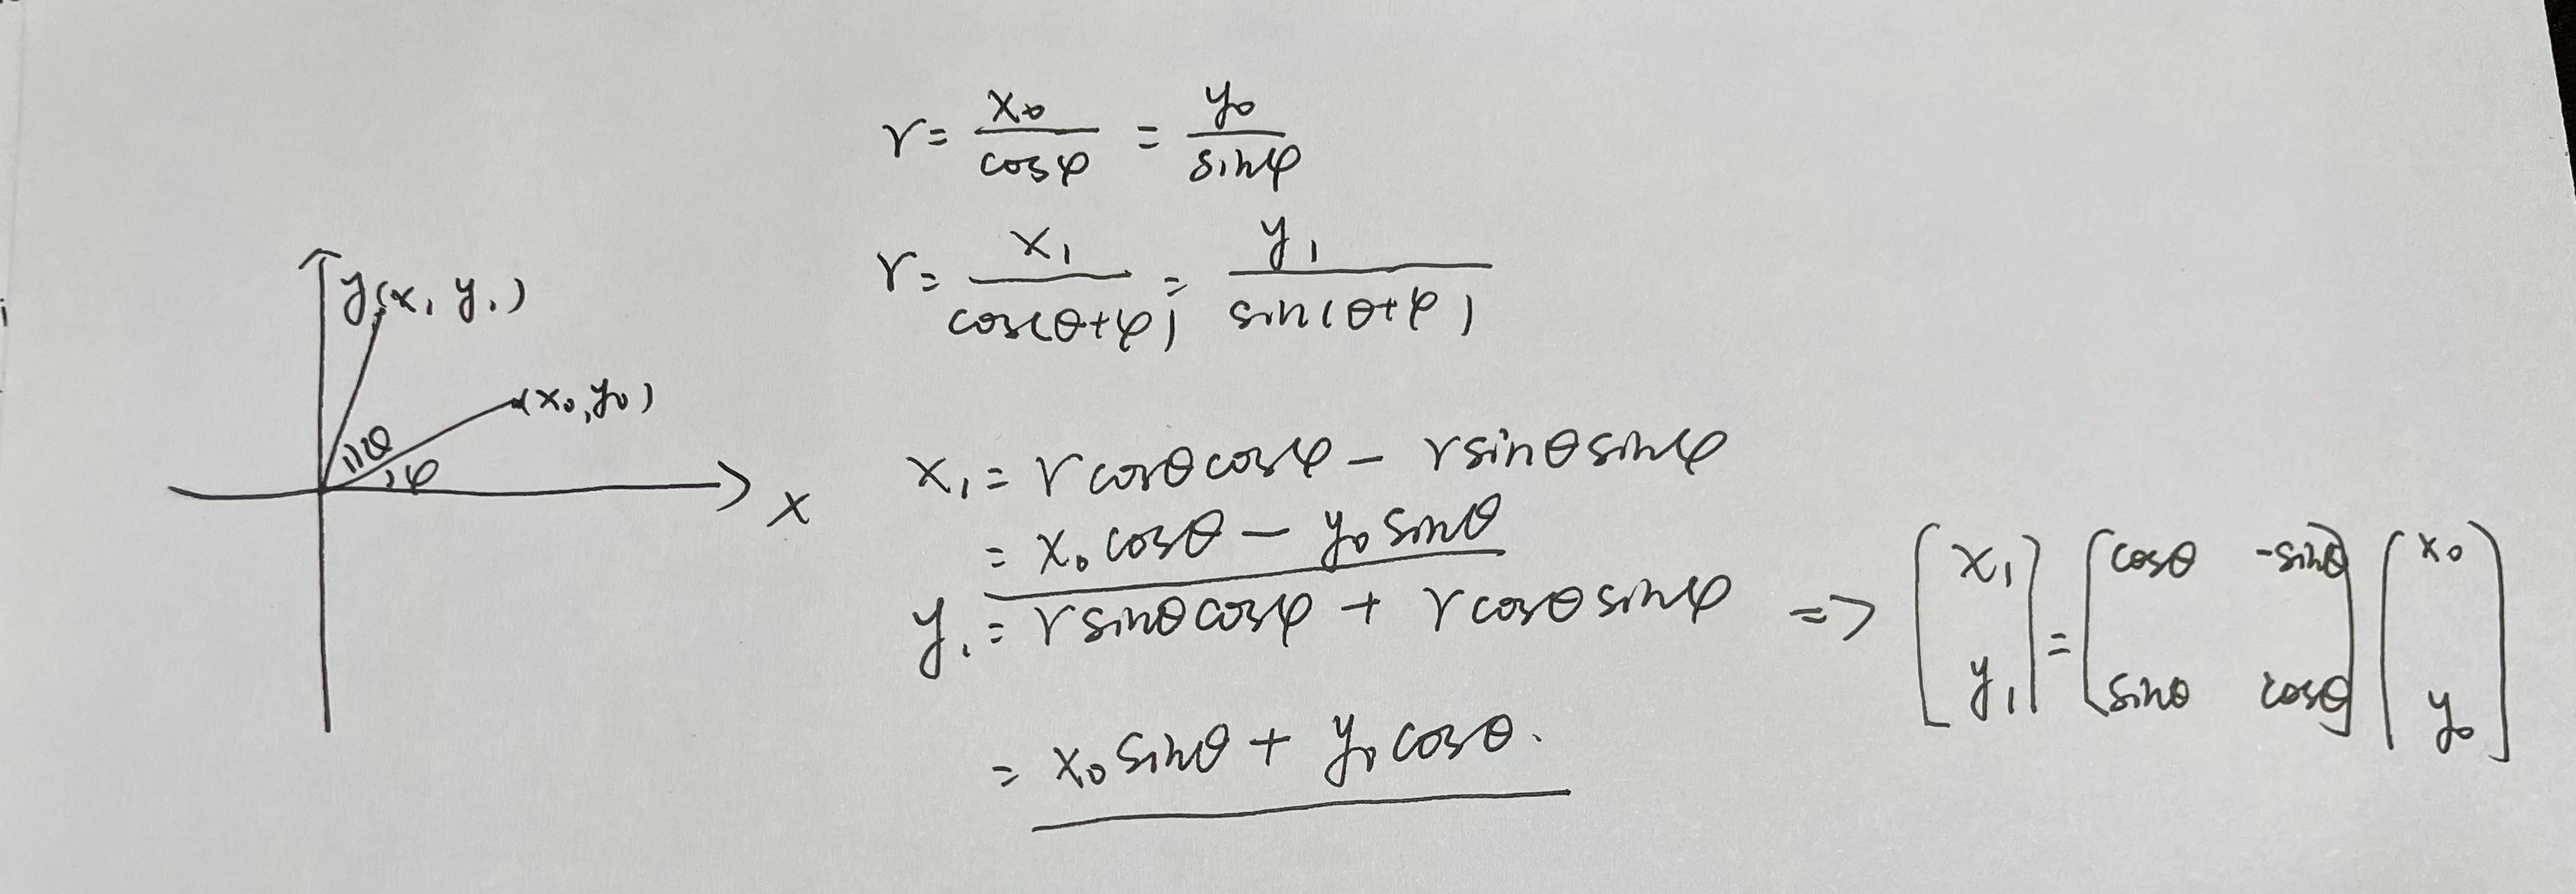 r = x₀/cosφ = y₀/sinφ
r = x₁/cos(θ+φ) = y₁/sin(θ+φ)
y (x₁ y₁)
(x₀, y₀)
θ
φ
x
x₁ = r cosθ cosφ − r sinθ sinφ
= x₀ cosθ − y₀ sinθ
y₁ = r sinθ cosφ + r cosθ sinφ
= x₀ sinθ + y₀ cosθ.
=> [x₁; y₁] = [cosθ -sinθ; sinθ cosθ] [x₀; y₀]